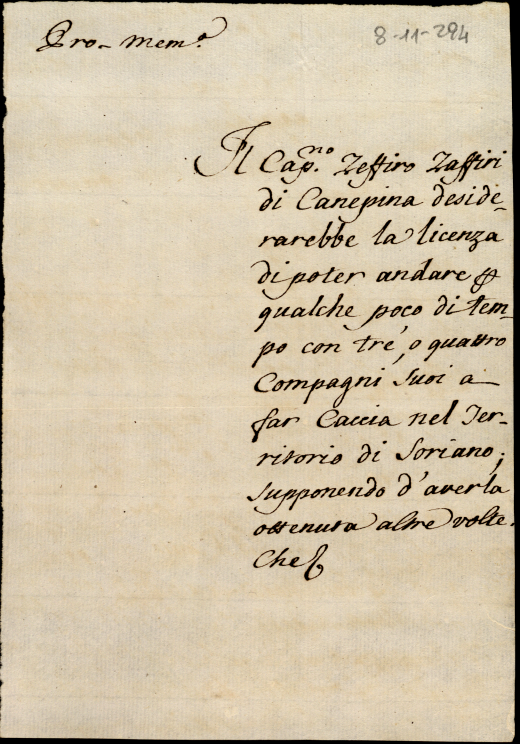 Pro-mem.ª
8-11-294
Il Cap.no Zeffiro Zaffiri
di Canepina deside-
rarebbe la licenza
di poter andare ꝑ
qualche poco di tem-
po con tre, o quattro
Compagni suoi a
far Caccia nel Ter-
ritorio di Soriano;
supponendo d'averla
ottenuta altre volte.
Che